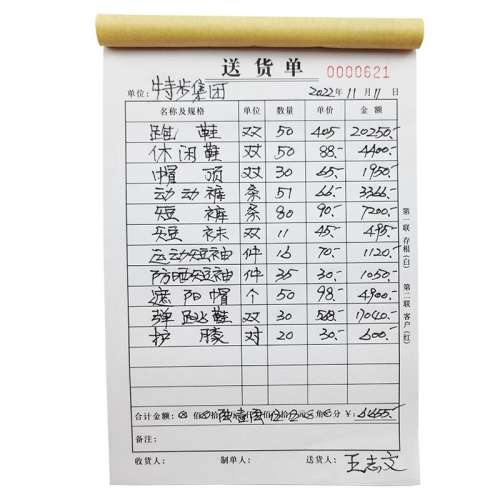 送货单 0000621
单位:特步集团 2022年11月11日
名称及规格 单位 数量 单价 金额
跑鞋 双 50 405 20250.-
休闲鞋 双 50 88.- 4400.-
帽顶 双 30 65.- 1950.-
动动裤 条 51 66.- 3366.-
短裤 条 80 90.- 7200.-
短袜 双 11 45.- 495.-
运动短袖 件 16 70.- 1120.-
防晒短袖 件 35 30.- 1050.-
遮阳帽 个 50 98.- 4900.-
弹跳鞋 双 30 568.- 17040.-
护膝 对 20 30.- 600.-
合计金额: 佰 拾 万 仟 佰 拾 元 角 分 ¥:
备注:
收货人: 制单人: 送货人:王志文
第一联 存根(白) 第二联 客户(红)